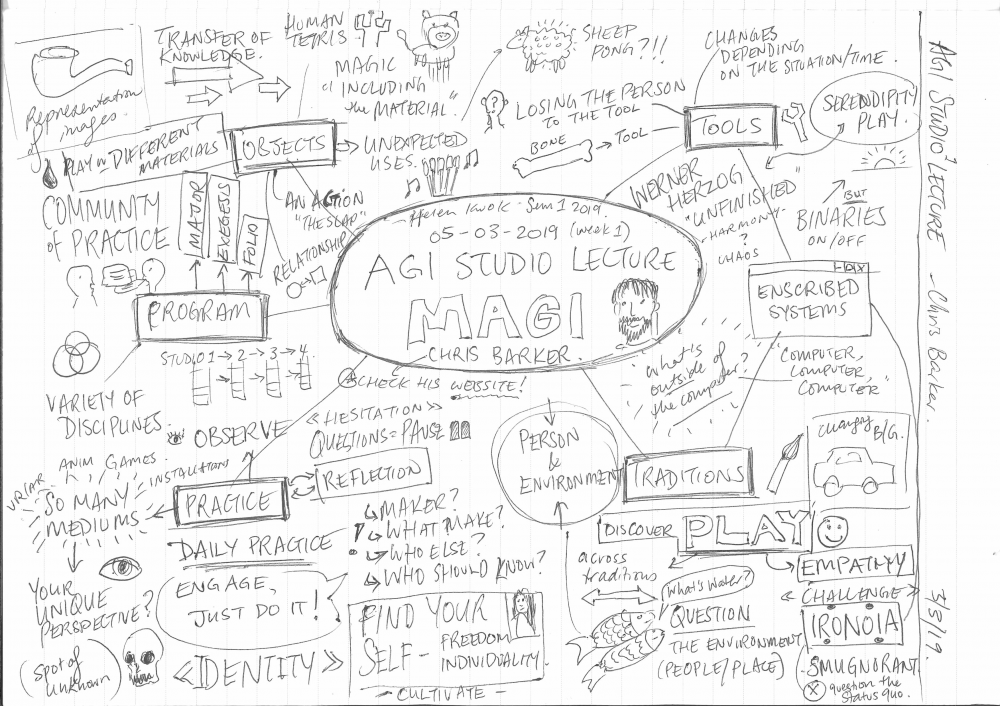 TRANSFER OF
KNOWLEDGE.
Representation
images.
PLAY w DIFFERENT
MATERIALS
OBJECTS
HUMAN
TETRIS
MAGIC
"INCLUDING
the MATERIAL"
UNEXPECTED
USES.
SHEEP
PONG?!!
LOSING THE PERSON
TO THE TOOL
BONE
TOOL
CHANGES
DEPENDING
ON THE SITUATION/TIME.
TOOLS
SERENDIPITY
PLAY.
WERNER
HERZOG
"UNFINISHED"
-HARMONY-
?
CHAOS
BUT
BINARIES
ON/OFF
COMMUNITY
of PRACTICE
MAJOR
EXEGESIS
FOLIO
AN ACTION
"THE SLAP"
RELATIONSHIP
PROGRAM
STUDIO 1 → 2 → 3 → 4.
VARIETY OF
DISCIPLINES.
Helen Kwok - Sem 1 2019.
05-03-2019 (week 1)
AGI STUDIO LECTURE
MAGI
CHRIS BARKER.
CHECK HIS WEBSITE!
ENSCRIBED
SYSTEMS
"COMPUTER,
COMPUTER,
COMPUTER"
what's
outside of
the computer?
OBSERVE
<<HESITATION>>
QUESTIONS = PAUSE
REFLECTION
PRACTICE
VR/AR
ANIM
GAMES.
INSTALLATIONS
SO MANY
MEDIUMS
DAILY PRACTICE
MAKER?
WHAT MAKE?
WHO ELSE?
WHO SHOULD KNOW?
YOUR
UNIQUE
PERSPECTIVE?
(spot of
unknown)
ENGAGE,
JUST DO IT!
<<IDENTITY>>
FIND YOUR
SELF-
FREEDOM
INDIVIDUALITY.
- CULTIVATE -
PERSON
&
ENVIRONMENT
TRADITIONS
Changing
B/G.
DISCOVER
PLAY
across
traditions
What's Water?
QUESTION
THE ENVIRONMENT
(PEOPLE/PLACE)
EMPATHY
<CHALLENGE>
IRONOIA
-SMUGNORANT.
question the
status quo.
AGI STUDIO 1 LECTURE - Chris Barker.
3/5/19.